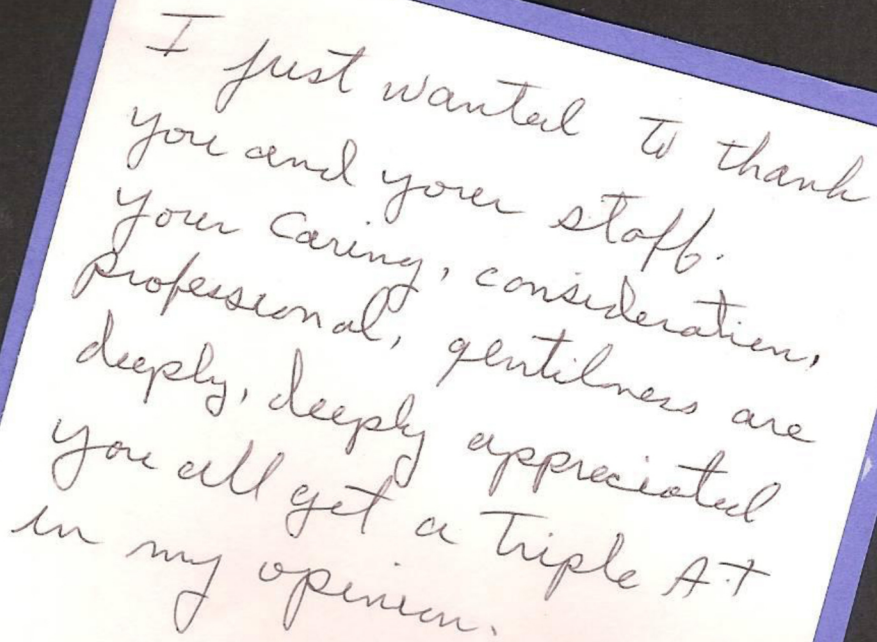 I just wanted to thank
you and your staff.
Your caring, consideration,
professional, gentilness are
deeply, deeply appreciated
you all get a Triple A+
in my opinion.